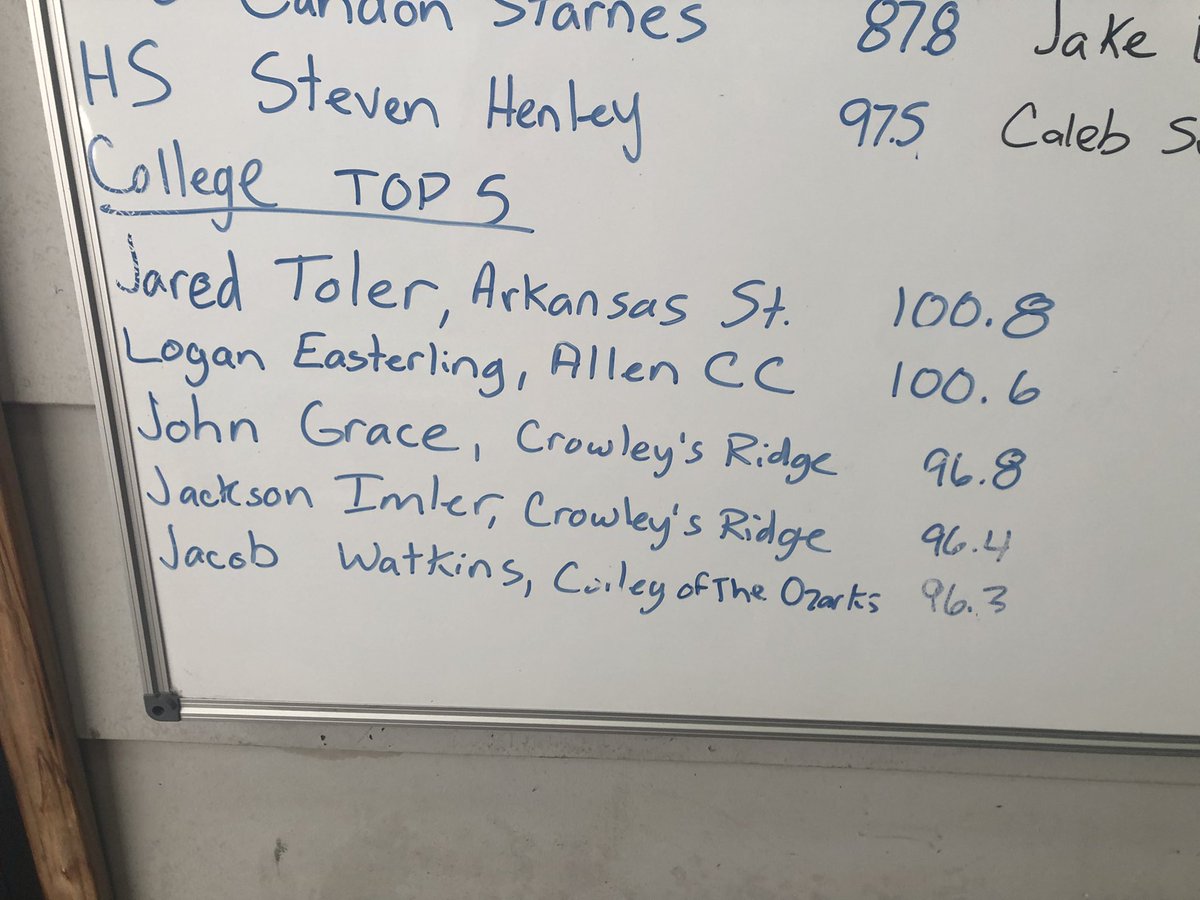 Starnes 87.8 Jake
HS Steven Henley 97.5 Caleb
College TOP 5
Jared Toler, Arkansas St. 100.8
Logan Easterling, Allen CC 100.6
John Grace, Crowley's Ridge 96.8
Jackson Imler, Crowley's Ridge 96.4
Jacob Watkins, of The Ozarks 96.3